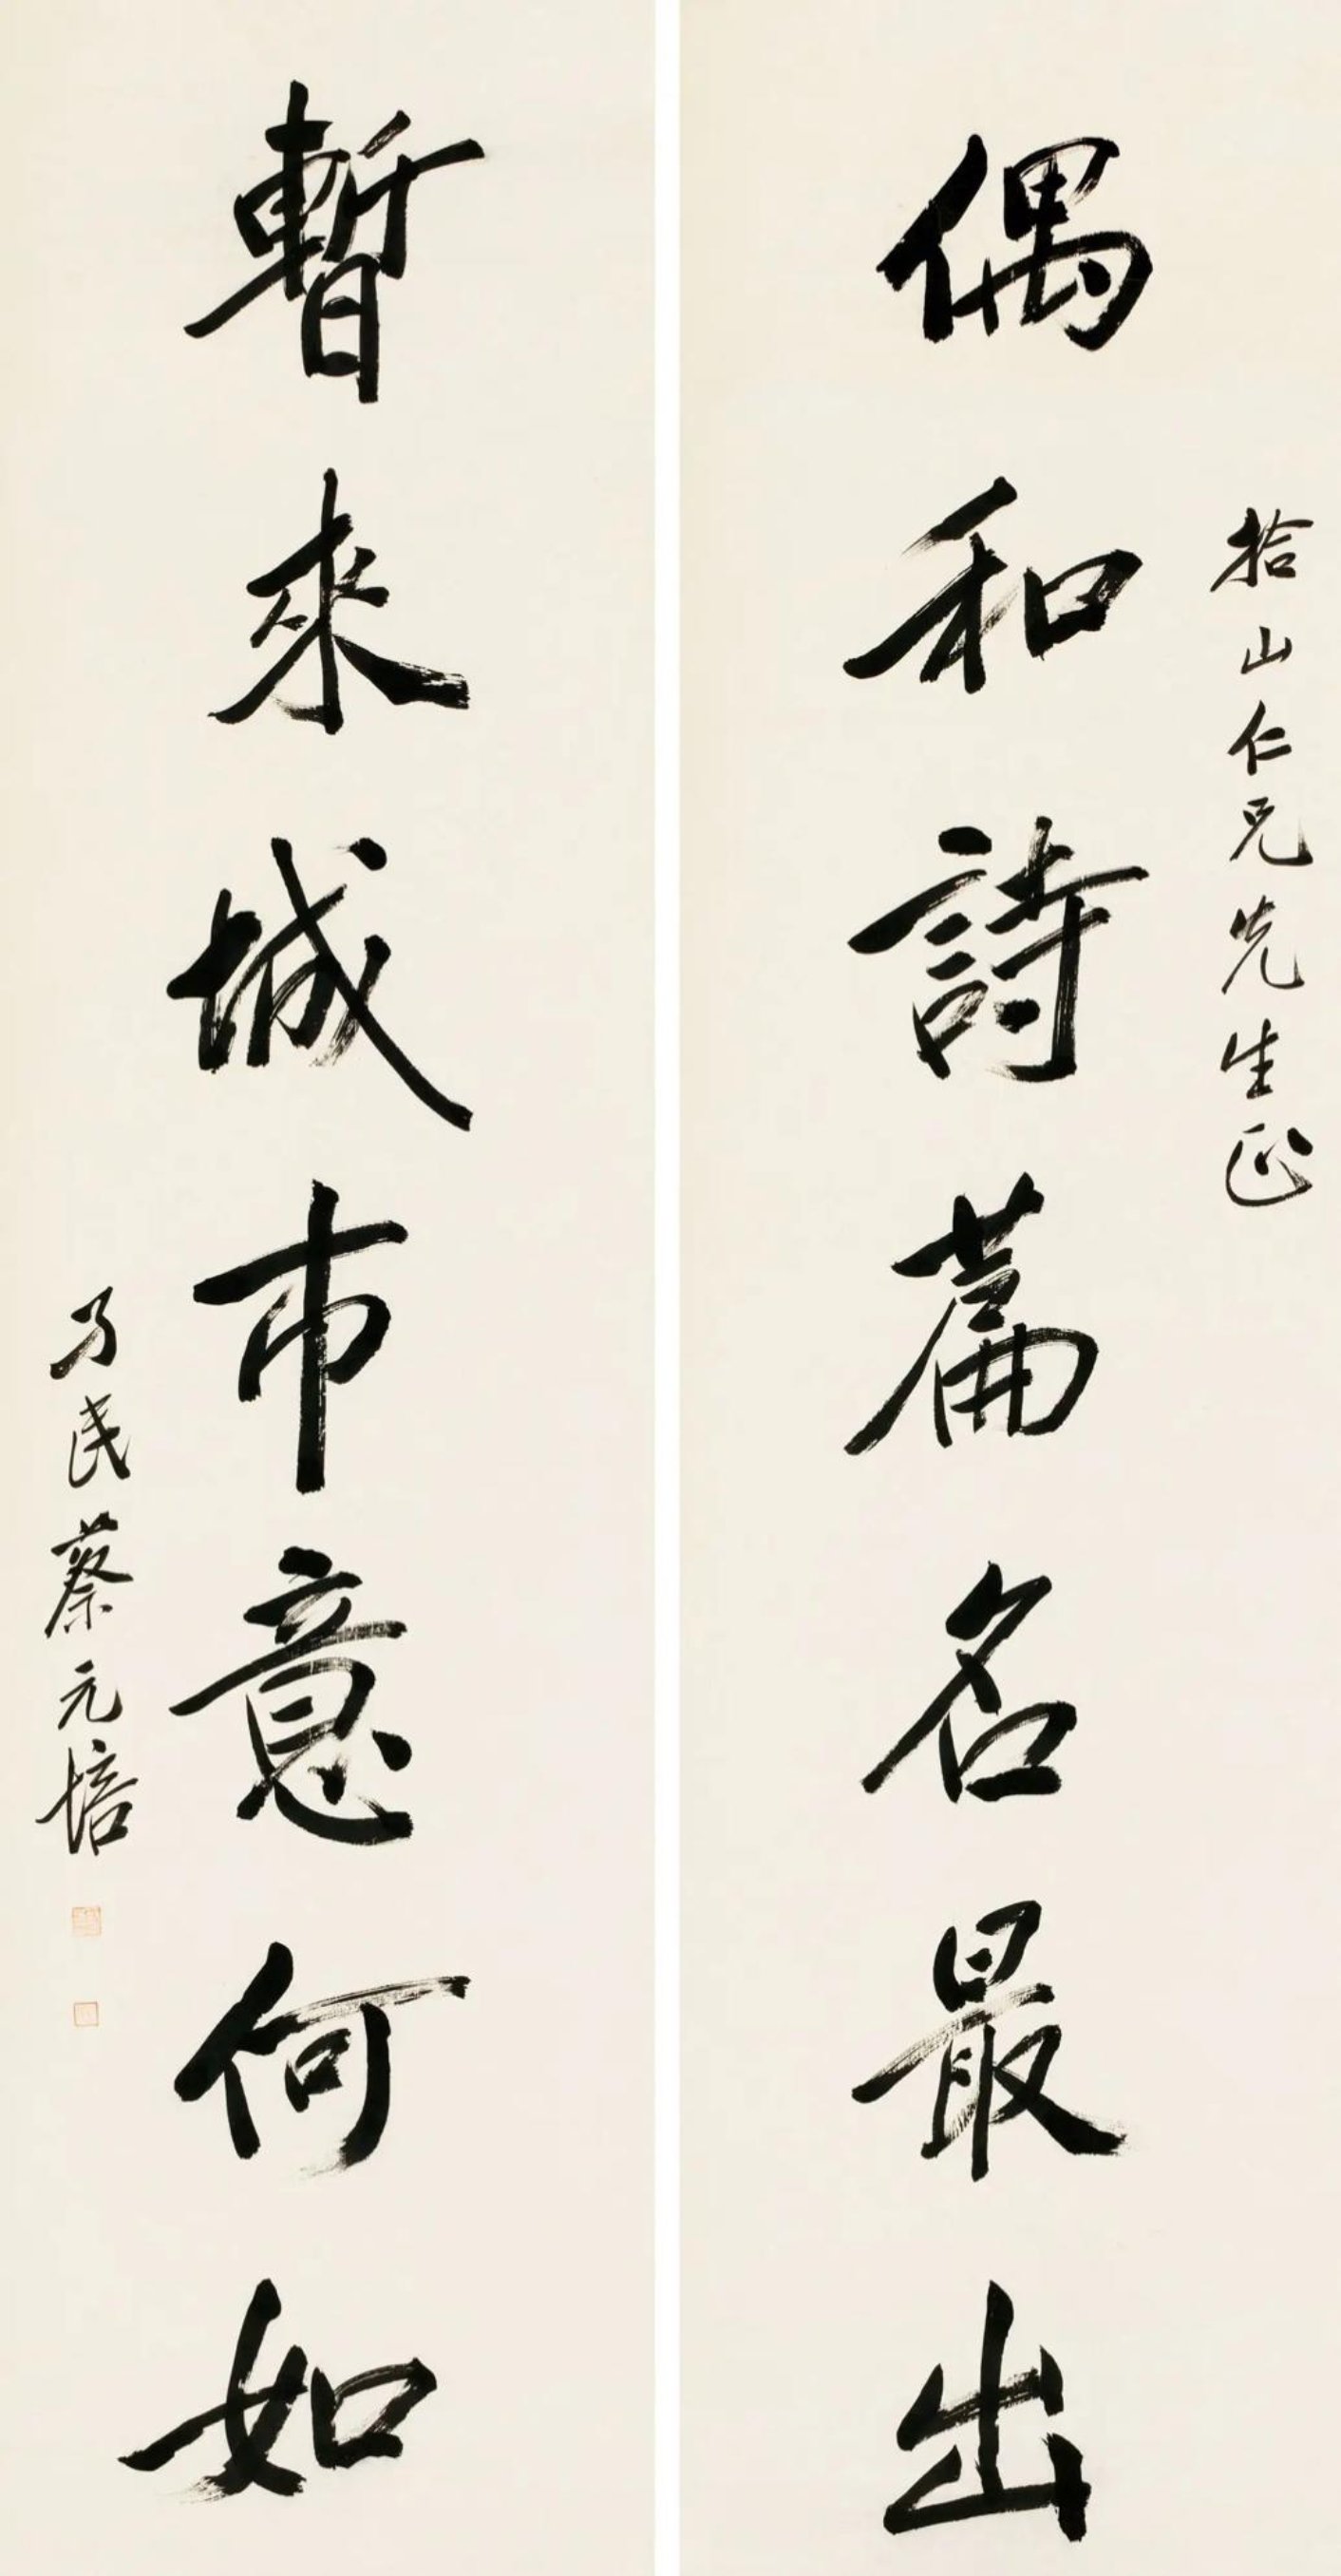 拾山仁兄先生正
偶和詩篇名最出
暫來城市意何如
孑民蔡元培